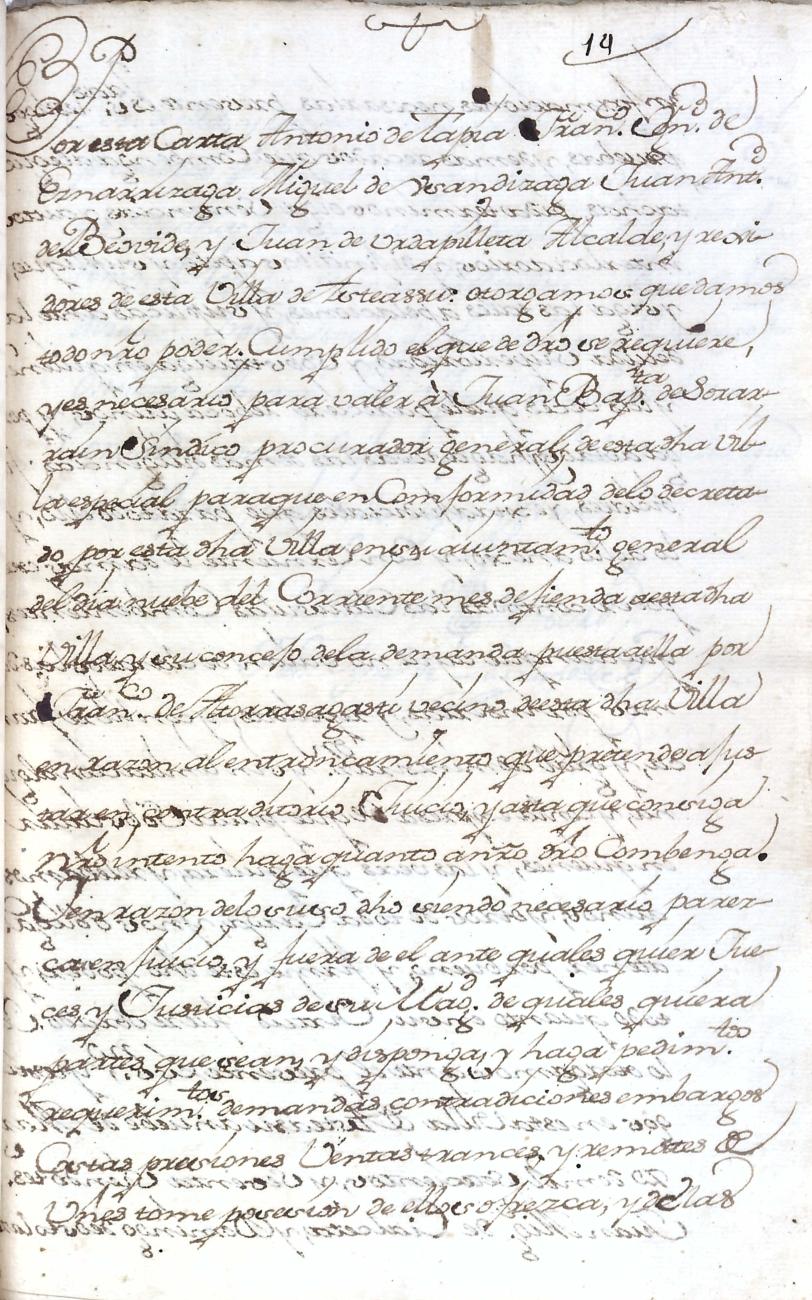 14
Por esta Carta Antonio de Tapia Fran.co Ign.o de
Ernarrizaga Miguel de Vsandizaga Juan Ant.o
de Beovide, y Juan de Vrdapilleta Alcalde, y rexi-
dores de esta Villa de Asteassu: otorgamos que damos
todo nro poder Cumplido el que de dro se requiere,
y es necesario para valer à Juan Bap.ta de Sorar-
rain Sindico procurador general, de esta dha Vil-
la especial para que en Comformidad de lo decreta-
do por esta dha Villa en su aiuntam.to general
del dia nuebe del Corriente mes defienda a esta dha
Villa, y su concejo de la demanda puesta a ella por
Fran.co de Atorrasagasti vecino de esta dha Villa
en razon al entroncamiento que pretende ajus-
tar en contraditorio Juicio, y asta que consiga
nro intento haga quanto a nro dro Combenga.
Y en razon de lo suso dho siendo necesario parez-
ca en juicio, y fuera de el ante quales quier Jue-
ces, y Justicias de su Mag.d de quales quiera
partes que sean, y disponga, y haga pedim.tos
requerim.tos demandas, contradiciones embargos
prisiones Ventas trances, y remates de
Vnes tome posesion de ellos ofrezca, y de las